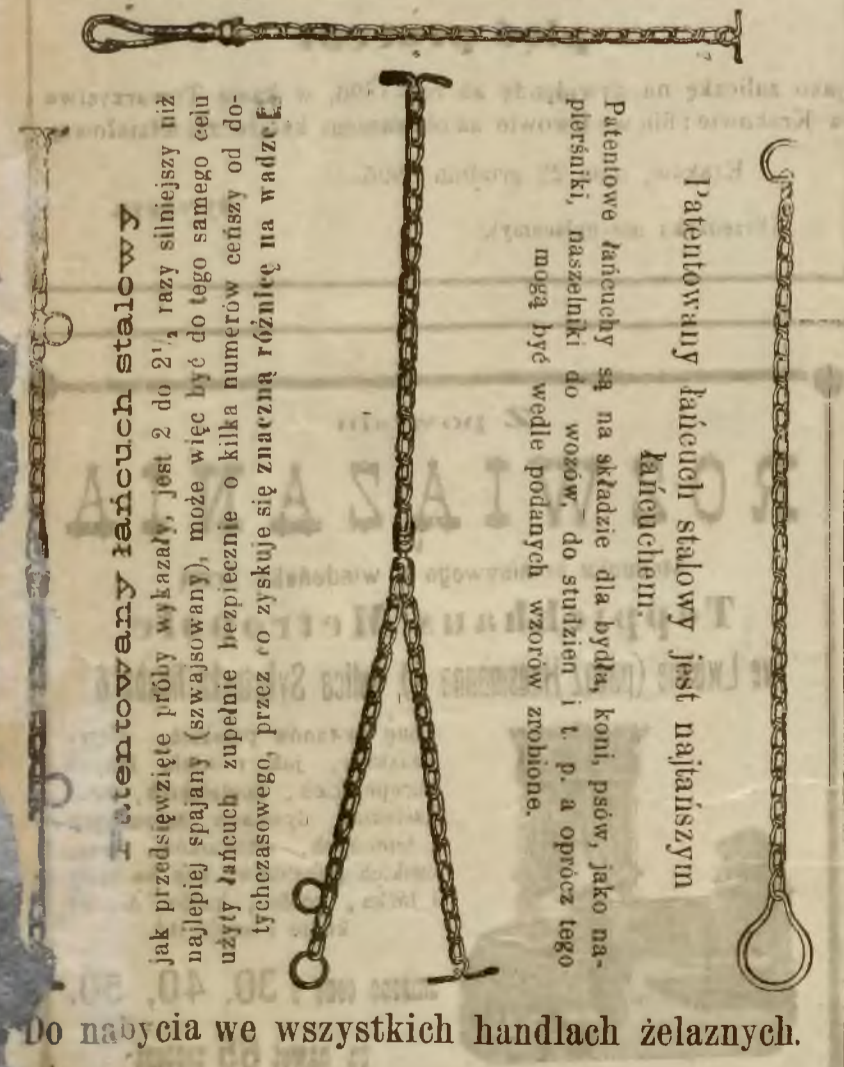 Patentowany łańcuch stalowy
jak przedsięwzięte próby wykazały, jest 2 do 2½ razy silniejszy niż
najlepiej spajany (szwajsowany), może więc być do tego samego celu
użyty łańcuch zupełnie bezpiecznie o kilka numerów ceńszy od do-
tychczasowego, przez co zyskuje się znaczną różnicę na wadze.
Patentowany łańcuch stalowy jest najtańszym
łańcuchem.
Patentowe łańcuchy są na składzie dla bydła, koni, psów, jako na-
pierśniki, naszelniki do wozów, do studzien i t. p. a oprócz tego
mogą być wedle podanych wzorów zrobione.
Do nabycia we wszystkich handlach żelaznych.